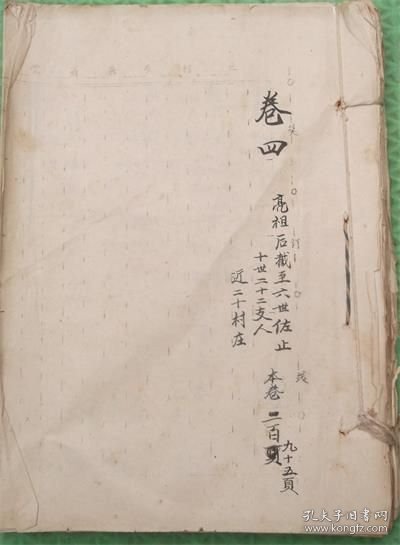 卷四
亮祖后截至六世佐止
十世二十二支人
近二十村庄
本卷二百頁
九十五頁
孔夫子旧书网
kongfz.com